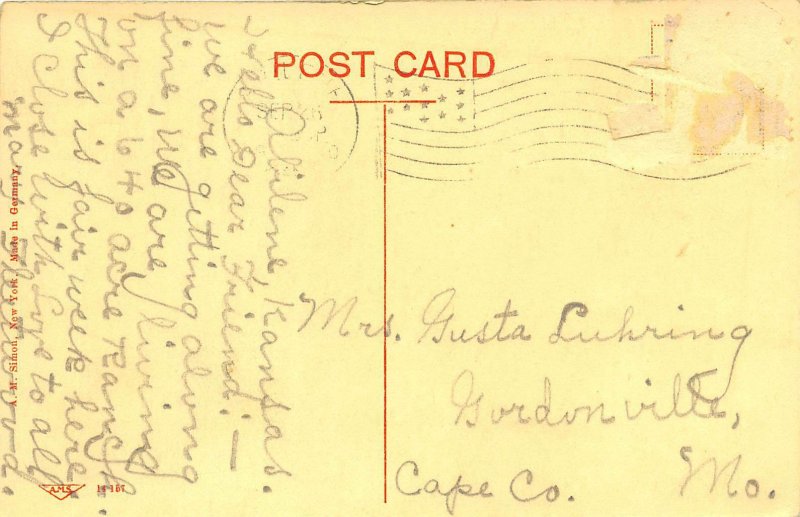 POST CARD
Abilene, Kansas.
Hello Dear Friend:—
we are getting along
fine, we are living
on a 640 acre Ranch.
This is fair week here.
I close with Love to all.
May
Mrs. Gusta Luhring
Gordonville,
Cape Co. Mo.
A. M. Simon, New York. Made in Germany.
A.M.S.